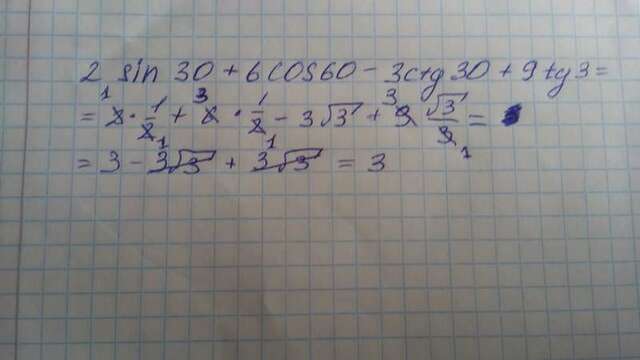 2 sin 30 + 6 cos 60 - 3 ctg 30 + 9 tg 3 =
= 2 · 1/2 + 6 · 1/2 - 3√3 + 9 √3/3 =
= 3 - 3√3 + 3√3 = 3